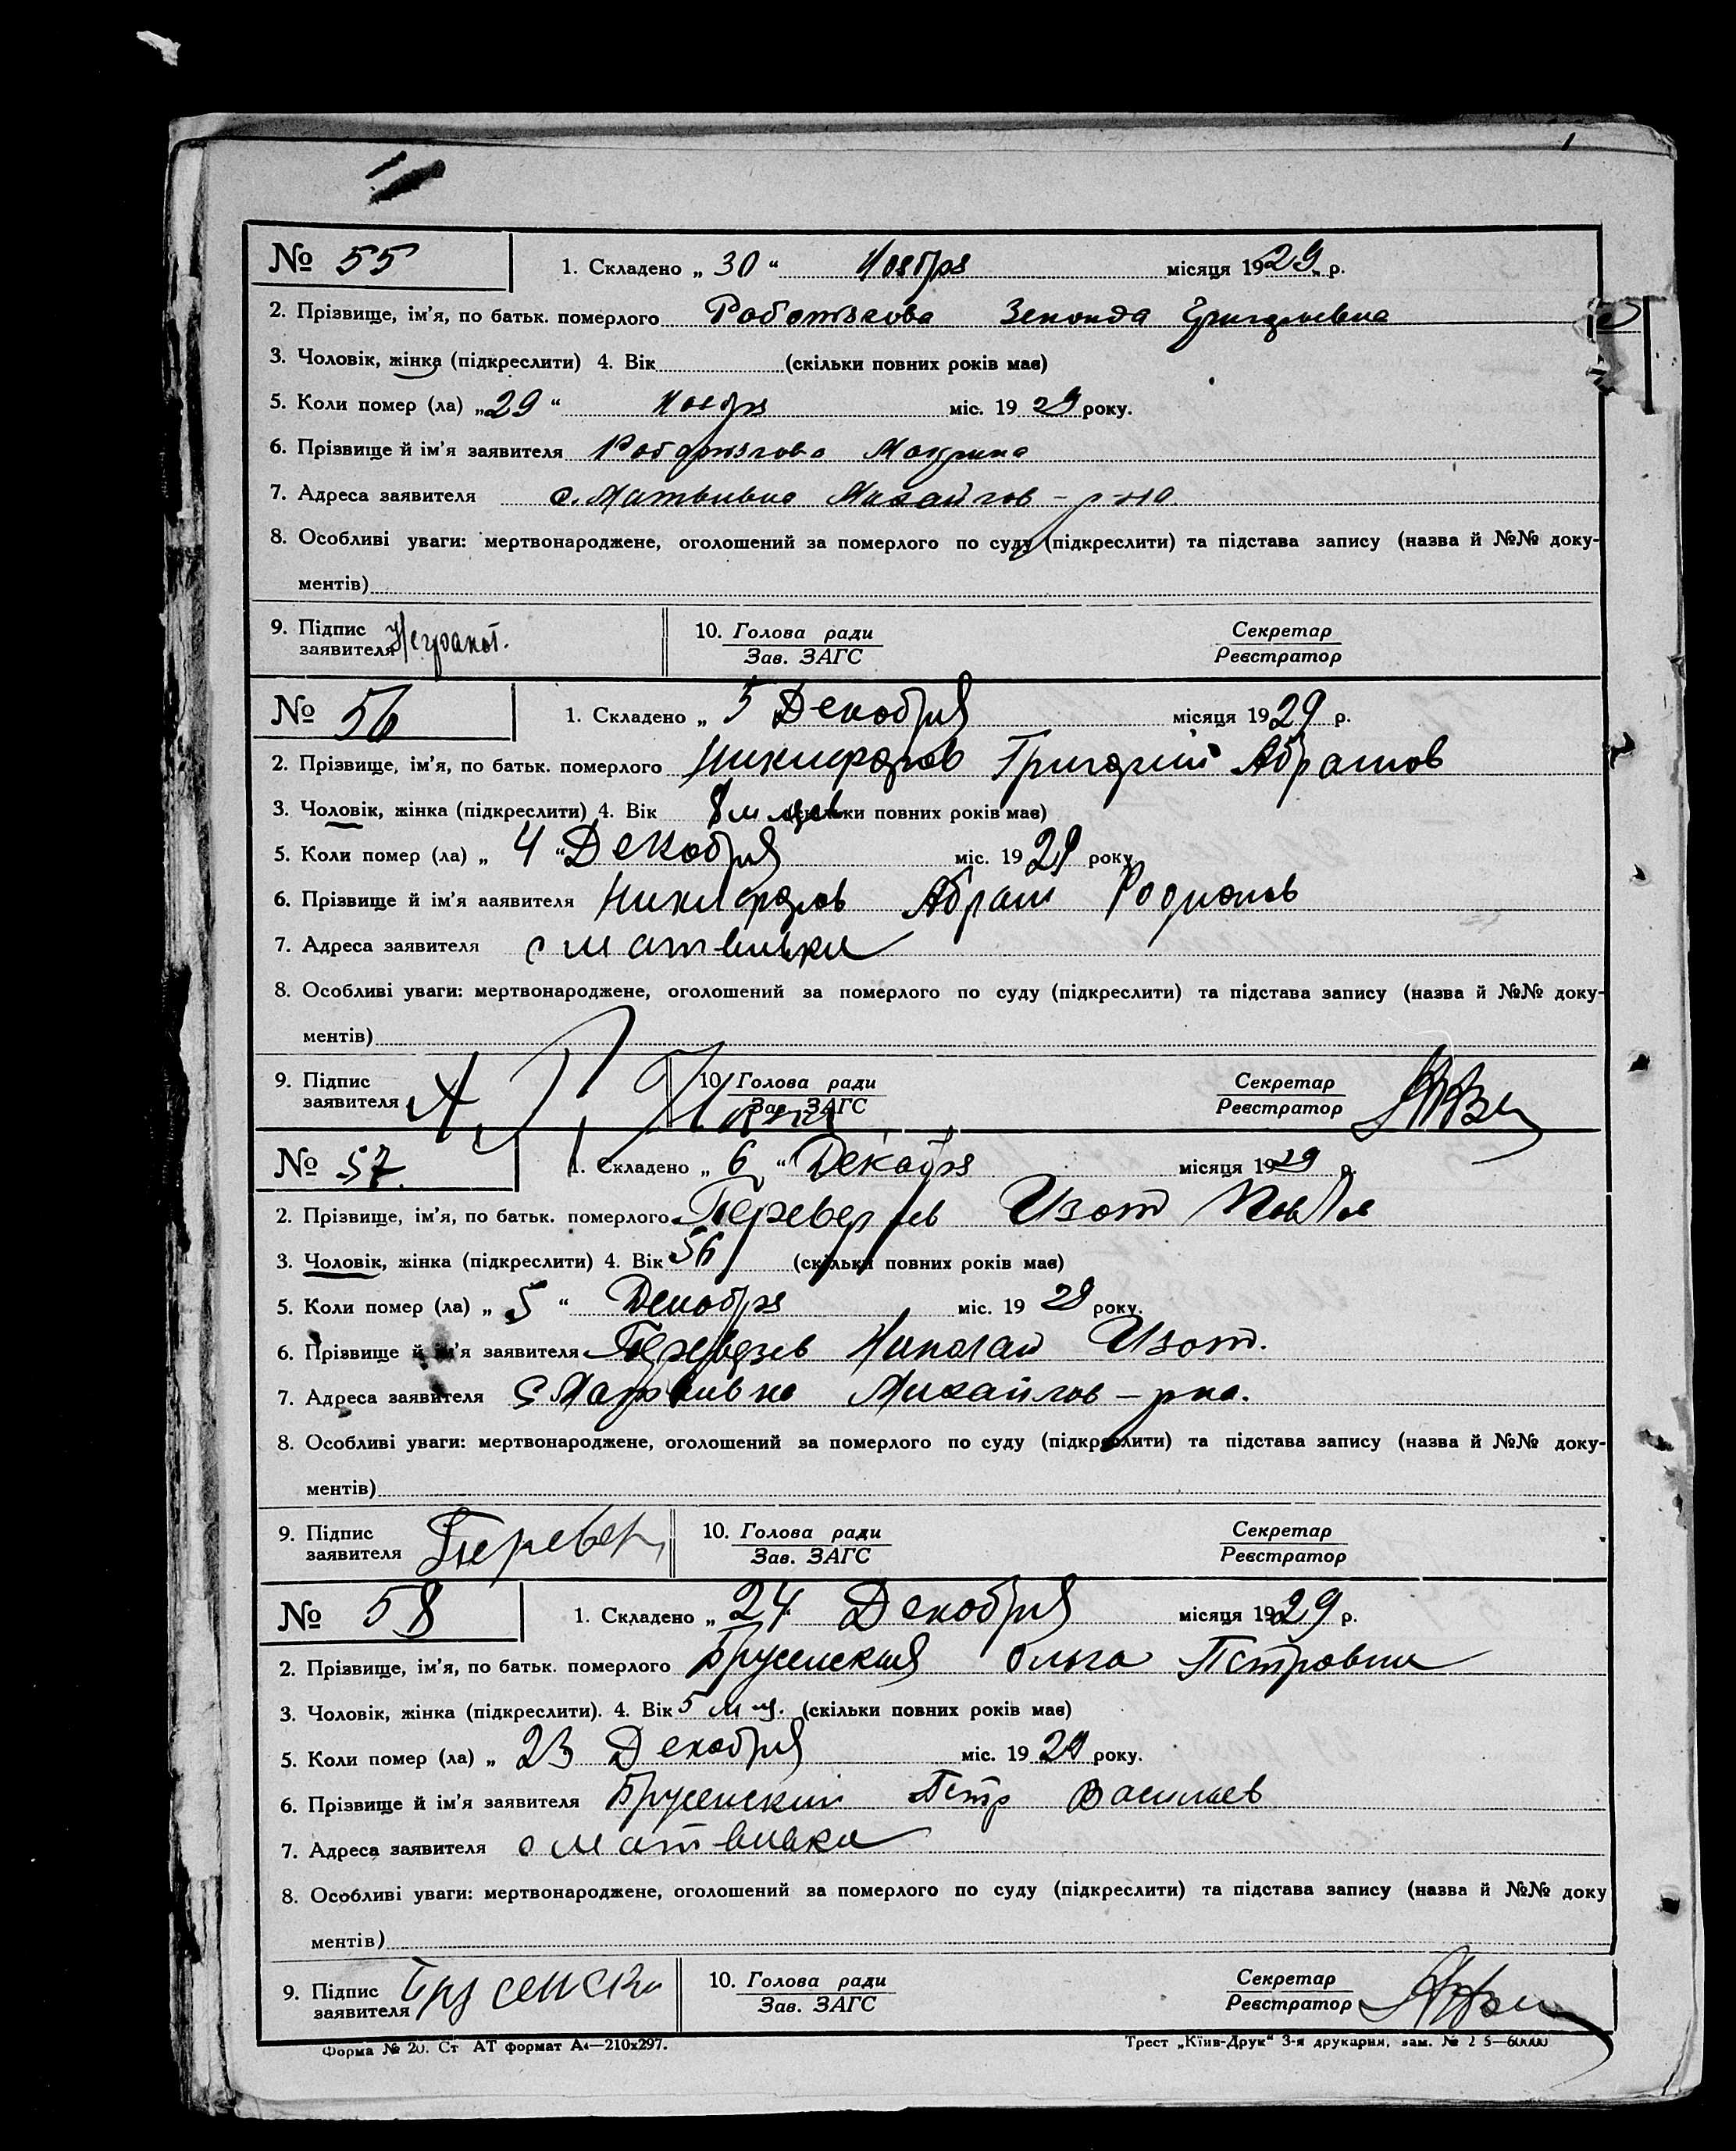 № 55 1. Складено „ 30 “ Ноября місяця 1929 р.
2. Прізвище, ім'я, по батьк. померлого
3. Чоловік, жінка (підкреслити) 4. Вік (скільки повних років має)
5. Коли помер (ла) „29 “ Ноября міс. 19 29 року.
6. Прізвище й ім'я заявителя
7. Адреса заявителя с. Матвивка Михайлов – р-на
8. Особливі уваги: мертвонароджене, оголошений за померлого по суду (підкреслити) та підстава запису (назва й №№ доку-
ментів)
9. Підпис заявителя Неграмот. 10. Голова ради Секретар
Зав. ЗАГС Реєстратор
№ 56 1. Складено „ 5 Декабря місяця 1929 р.
2. Прізвище, ім'я, по батьк. померлого Никифоров Григорий Абрамов
3. Чоловік, жінка (підкреслити) 4. Вік 8 (скільки повних років має)
5. Коли помер (ла) „ 4 “ Декабря міс. 19 29 року
6. Прізвище й ім'я ааявителя Никифоров Абрам Родионов
7. Адреса заявителя с Матвивки
8. Особливі уваги: мертвонароджене, оголошений за померлого по суду (підкреслити) та підстава запису (назва й №№ доку-
ментів)
9. Підпис заявителя 10. Голова ради Секретар
Зав. ЗАГС Реєстратор
№ 57. 1. Складено „ 6 “ Декабря місяця 1929 р.
2. Прізвище, ім'я, по батьк. померлого Изот Павлов
3. Чоловік, жінка (підкреслити) 4. Вік 56 (скільки повних років має)
5. Коли помер (ла) „ 5 “ Декабря міс. 19 29 року.
6. Прізвище й ім'я заявителя Николай Изот.
7. Адреса заявителя С Матвивка Михайлов – рна.
8. Особливі уваги: мертвонароджене, оголошений за померлого по суду (підкреслити) та підстава запису (назва й №№ доку-
ментів)
9. Підпис заявителя 10. Голова ради Секретар
Зав. ЗАГС Реєстратор
№ 58 1. Складено „ 24 Декабря місяця 1929 р.
2. Прізвище, ім'я, по батьк. померлого Брусенская Ольга Петровна
3. Чоловік, жінка (підкреслити). 4. Вік 5 (скільки повних років має)
5. Коли помер (ла) „ 23 Декабря міс. 19 29 року.
6. Прізвище й ім'я заявителя Брусенский Петр Васильев
7. Адреса заявителя с Матвивки
8. Особливі уваги: мертвонароджене, оголошений за померлого по суду (підкреслити) та підстава запису (назва й №№ доку
ментів)
9. Підпис заявителя 10. Голова ради Секретар
Зав. ЗАГС Реєстратор
Форма № 20. Ст АТ формат А4—210x297. Трест „Київ-Друк“ 3-я друкарня, зам. №